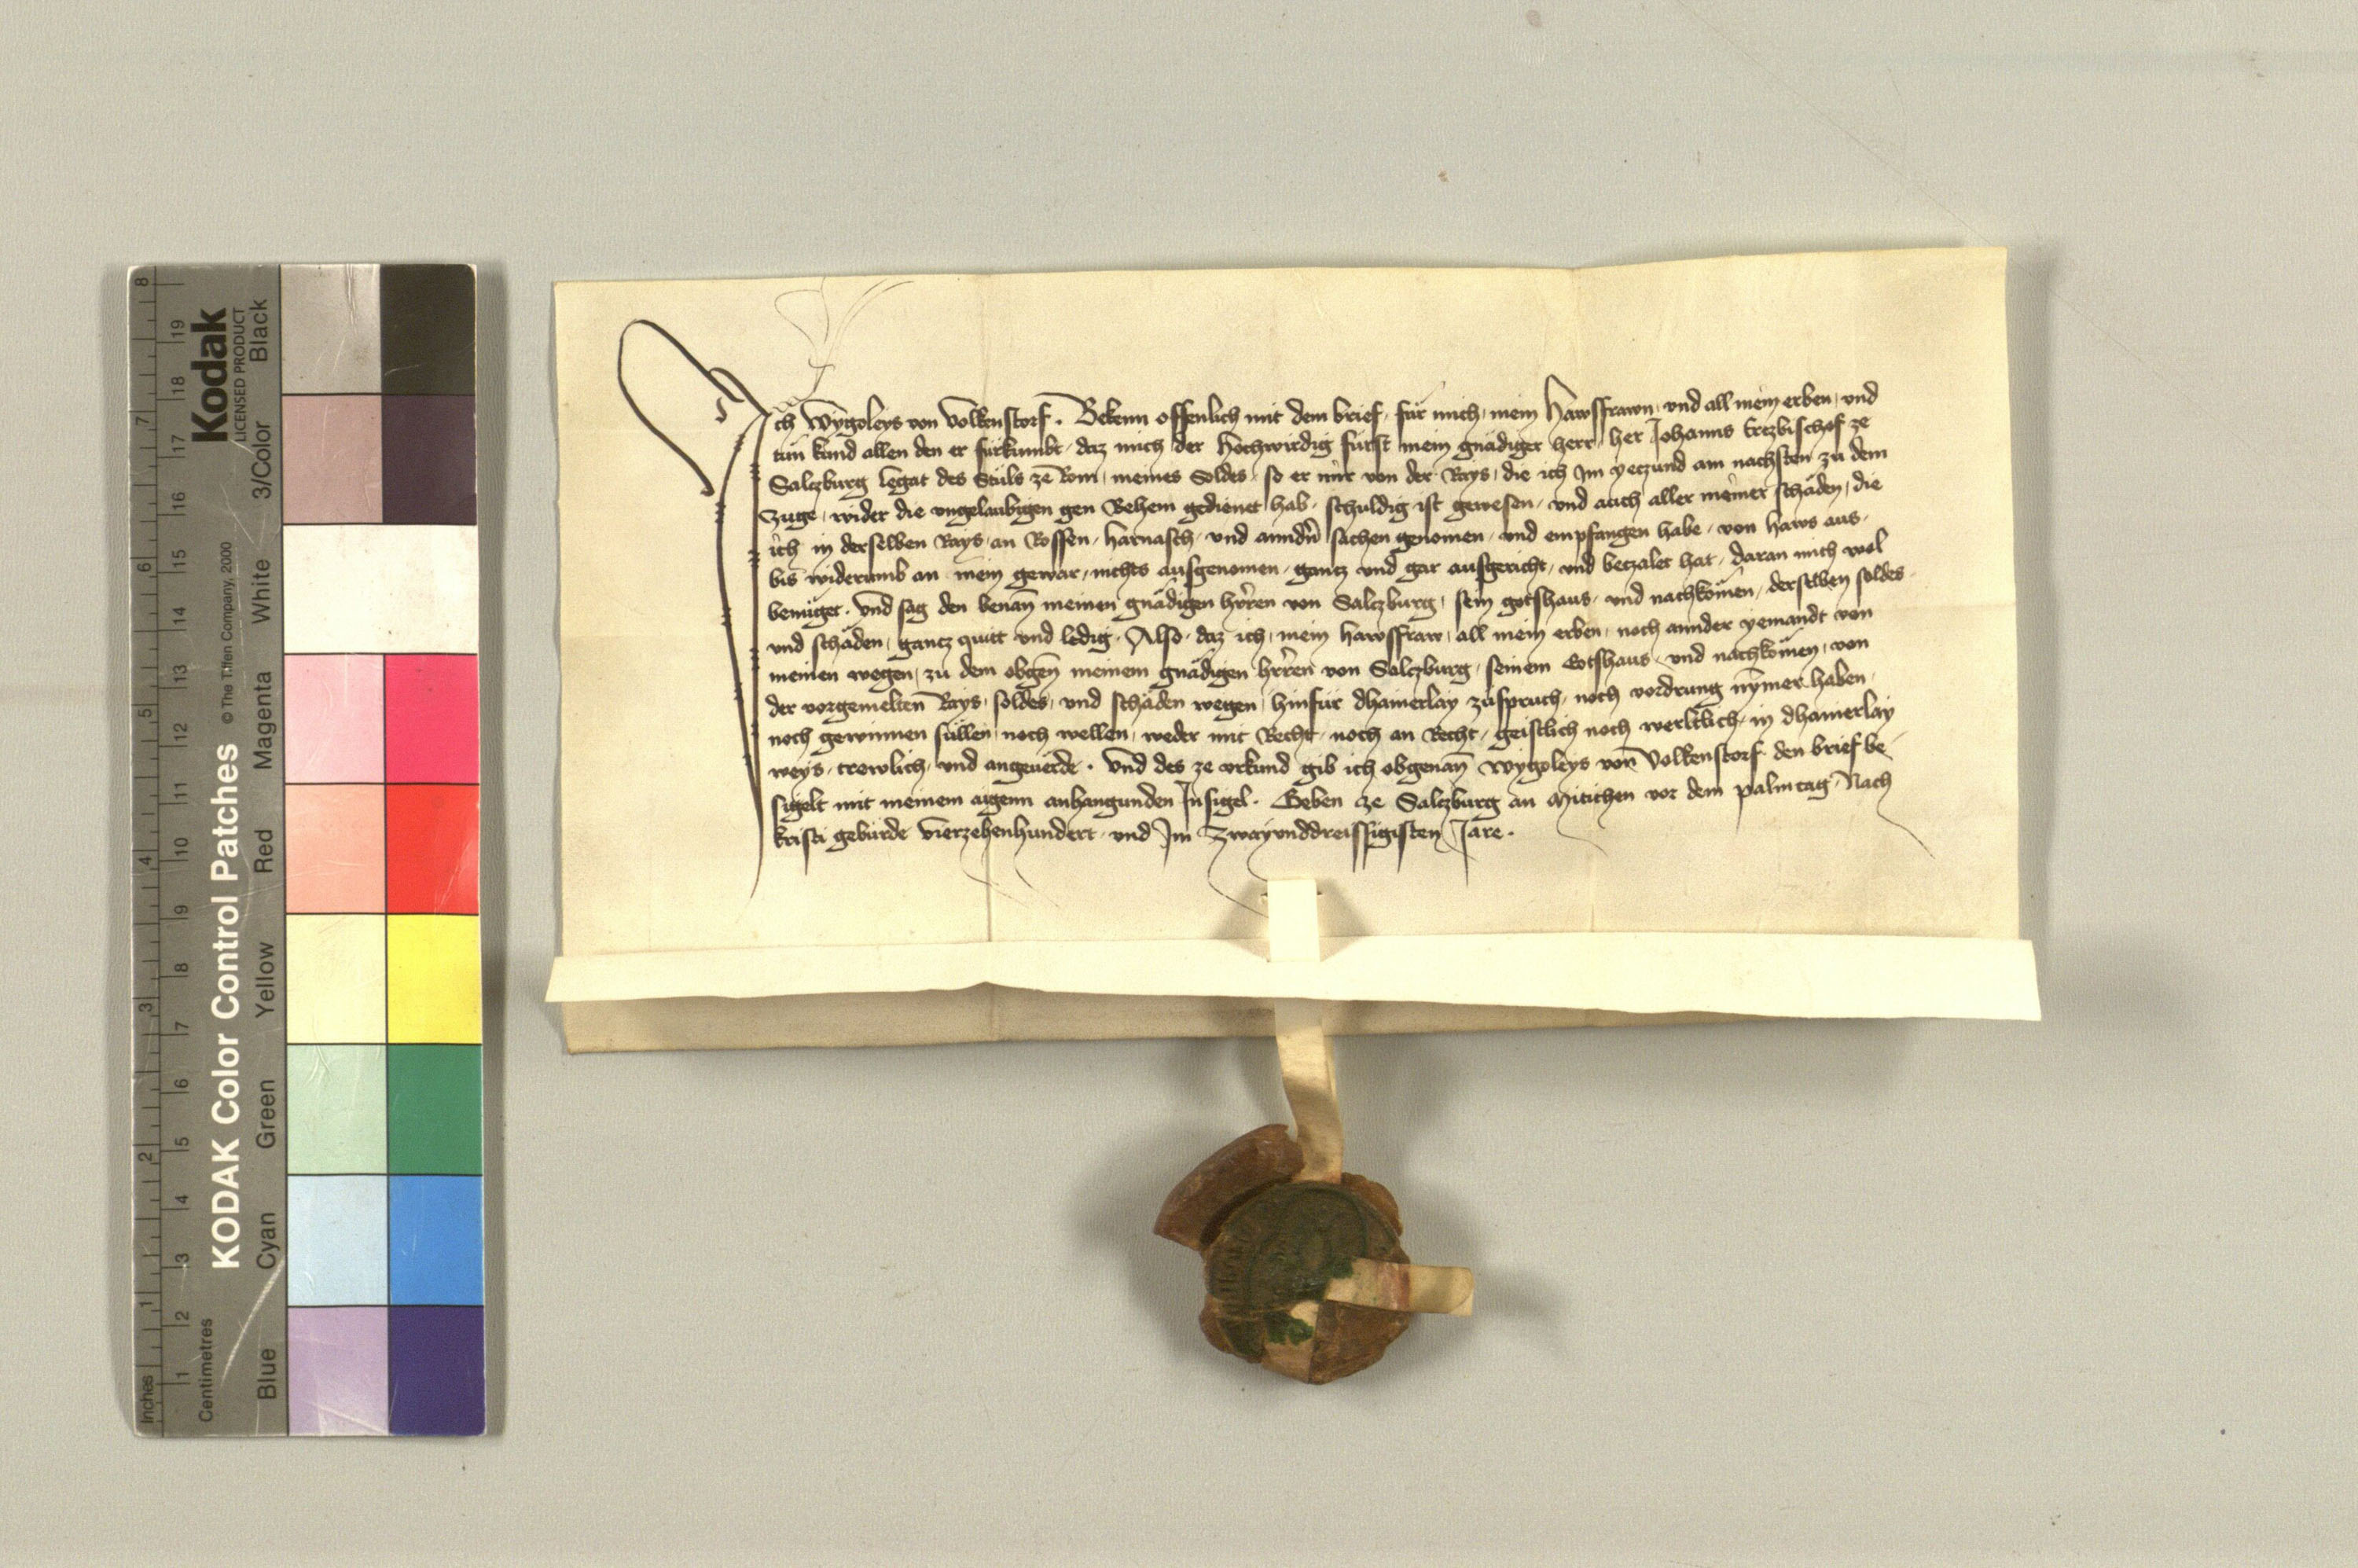 Ich Wygoleys von Volkenstorf. Bekenn offenlich mit dem brief, für mich, mein Hawsfrawn, und all mein erben, und
tün kund allen den er fürkumbt, daz mich der Hochwirdig fürst mein gnädiger herr, her Johanns Ertzbischof ze
Salczburg Legat des Stüls zē Rom, meines Soldes, so er mir von der Rays, die ich Im yeczund am nachsten zu dem
Zuge, wider die ungelaubigen gen Behem gedienet hab, schuldig ist gewesen, und auch aller meiner schäden, die
ich in derselben Rays, an Rossen, harnasch, und anndn̄ sachen genomen, und empfangen habe, von haws aus,
bis widerumb an mein gewar, nichts ausgenomen, gantz und gar ausgericht, und betzalet hat, daran mich wol
benüget. Und sag den benan̄ meinen gnädigen hr̄ren von Salczburg, sein gotshaus, und nachkomen, derselben soldes
und schäden, gantz quitt und ledig. Also, daz ich, mein hawsfraw, all mein erben, noch annder yemandt von
meinen wegen, zu dem obgen̄ meinem gnädigen hr̄ren von Salczburg, seinem Gotshaus, und nachkomen, von
der vorgemelten Rays, soldes, und schäden wegen, hinfür dhainerlay züspruch, noch vordrung nymer haben,
noch gewinnen süllen, noch wellen, weder mit Recht, noch an Recht, geistlich noch werltlich, in dhainerlay
weys, trewlich, und angeuerde. Und des ze urkund gib ich obgenan̄ Wygoleys von Volkenstorf den brief be-
sigelt mit meinem aigenn anhangunden Insigel. Geben ze Salczburg an Mitichen vor dem palmtag, Nach
kristi gebürde vierzehenhundert, und Im Zwayunddreissigisten Jare.
KODAK Color Control Patches
© The Tiffen Company, 2000
Kodak
LICENSED PRODUCT
Inches 1 2 3 4 5 6 7 8
Centimetres 1 2 3 4 5 6 7 8 9 10 11 12 13 14 15 16 17 18 19
Blue Cyan Green Yellow Red Magenta White 3/Color Black